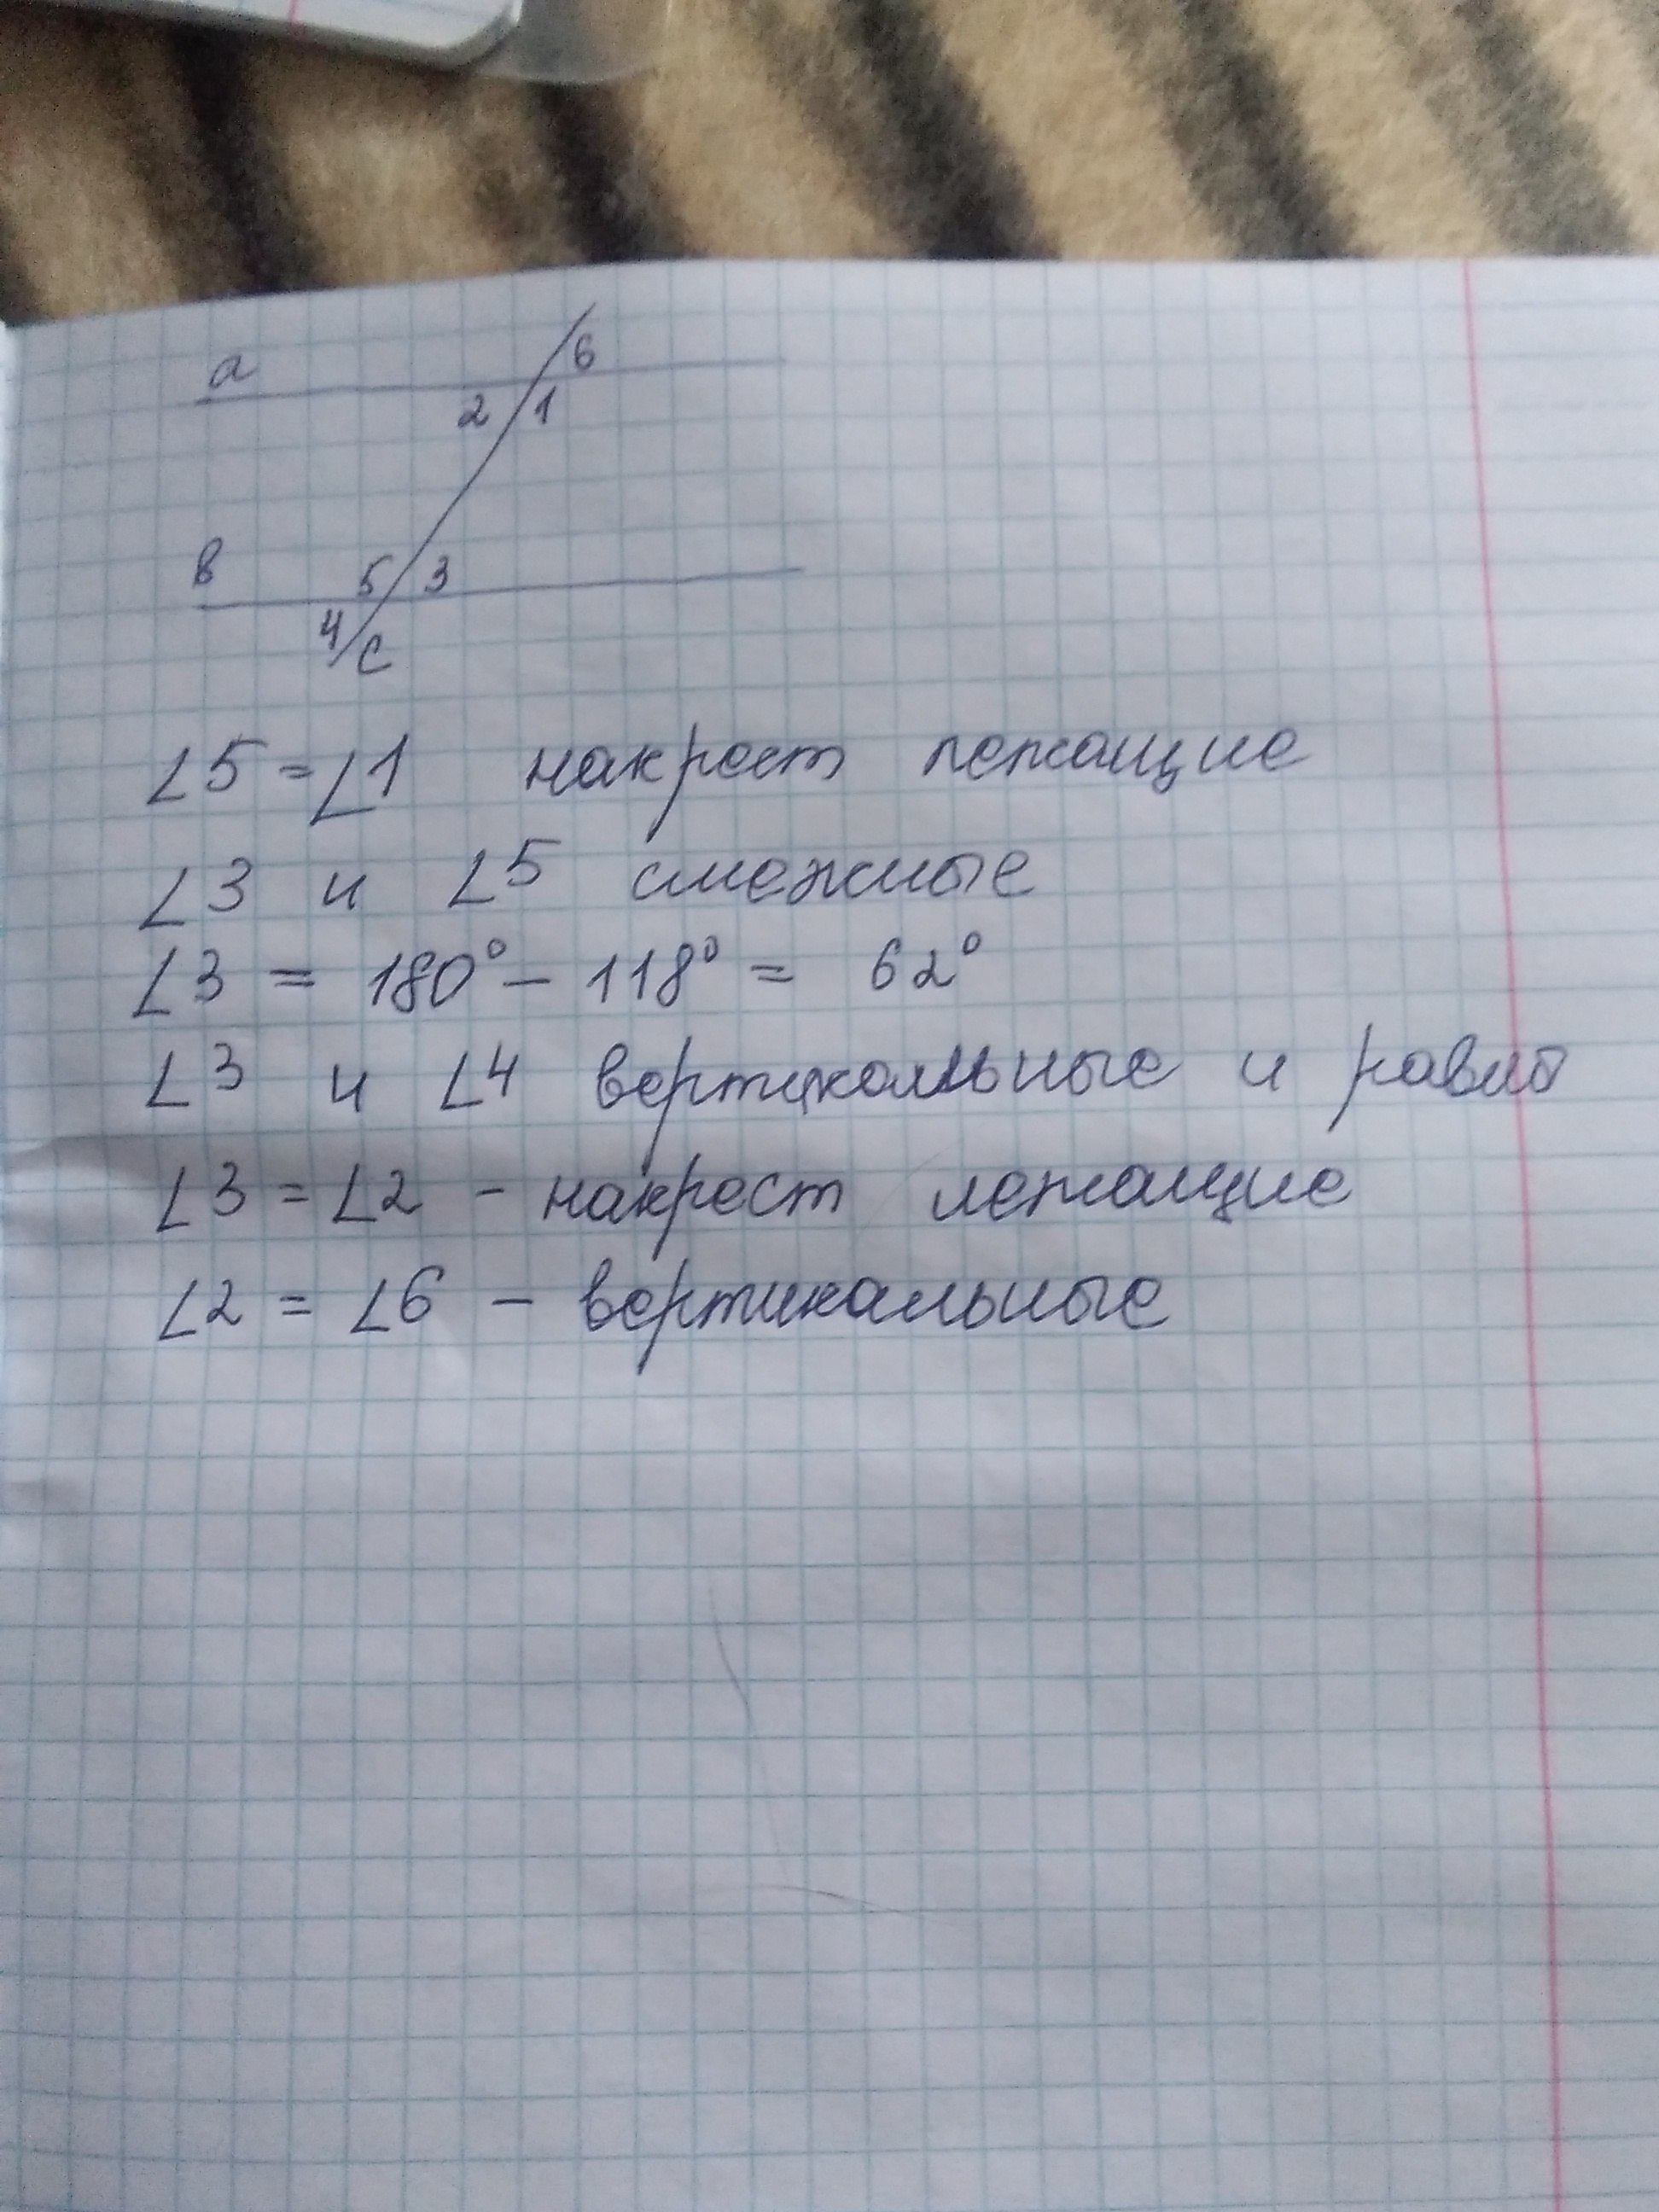 a
6
2 1
в
5 3
4 с
∠5 = ∠1 накрест лежащие
∠3 и ∠5 смежные
∠3 = 180° - 118° = 62°
∠3 и ∠4 вертикальные и равны
∠3 = ∠2 - накрест лежащие
∠2 = ∠6 - вертикальные